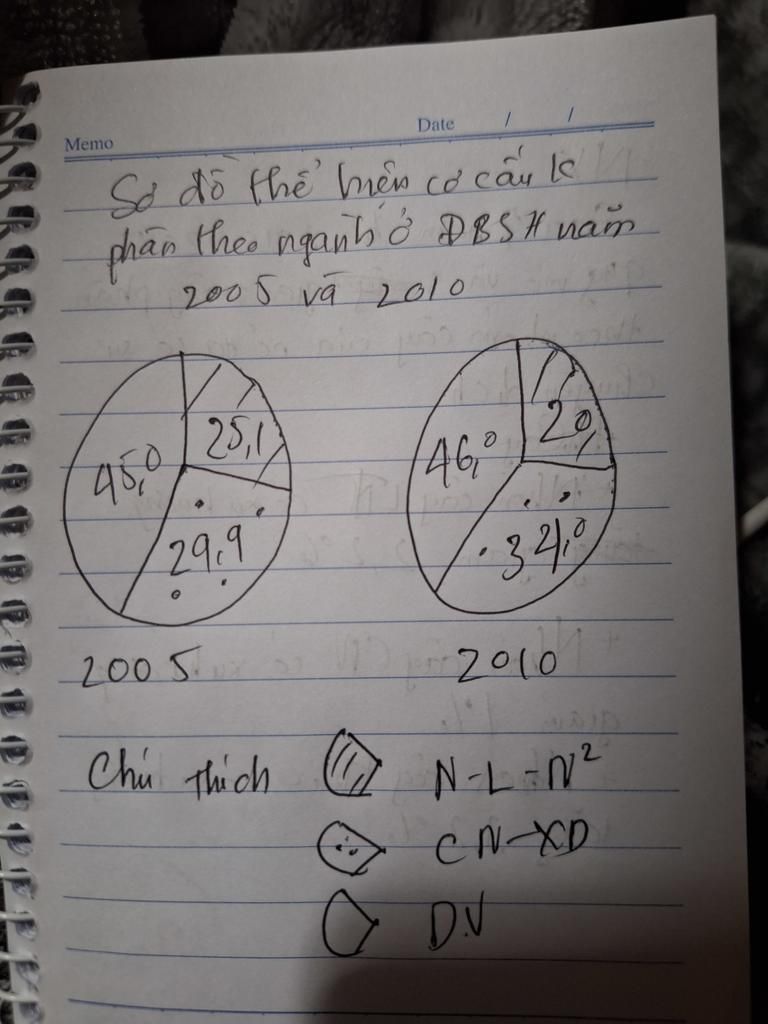 Memo
Date / /
Sơ đồ thể hiện cơ cấu k
phân theo ngành ở ĐBSH năm
2005 và 2010
45,0
25,1
29,9
46,0
20
34,0
2005
2010
Chú thích
N-L-N²
CN-XD
D.V